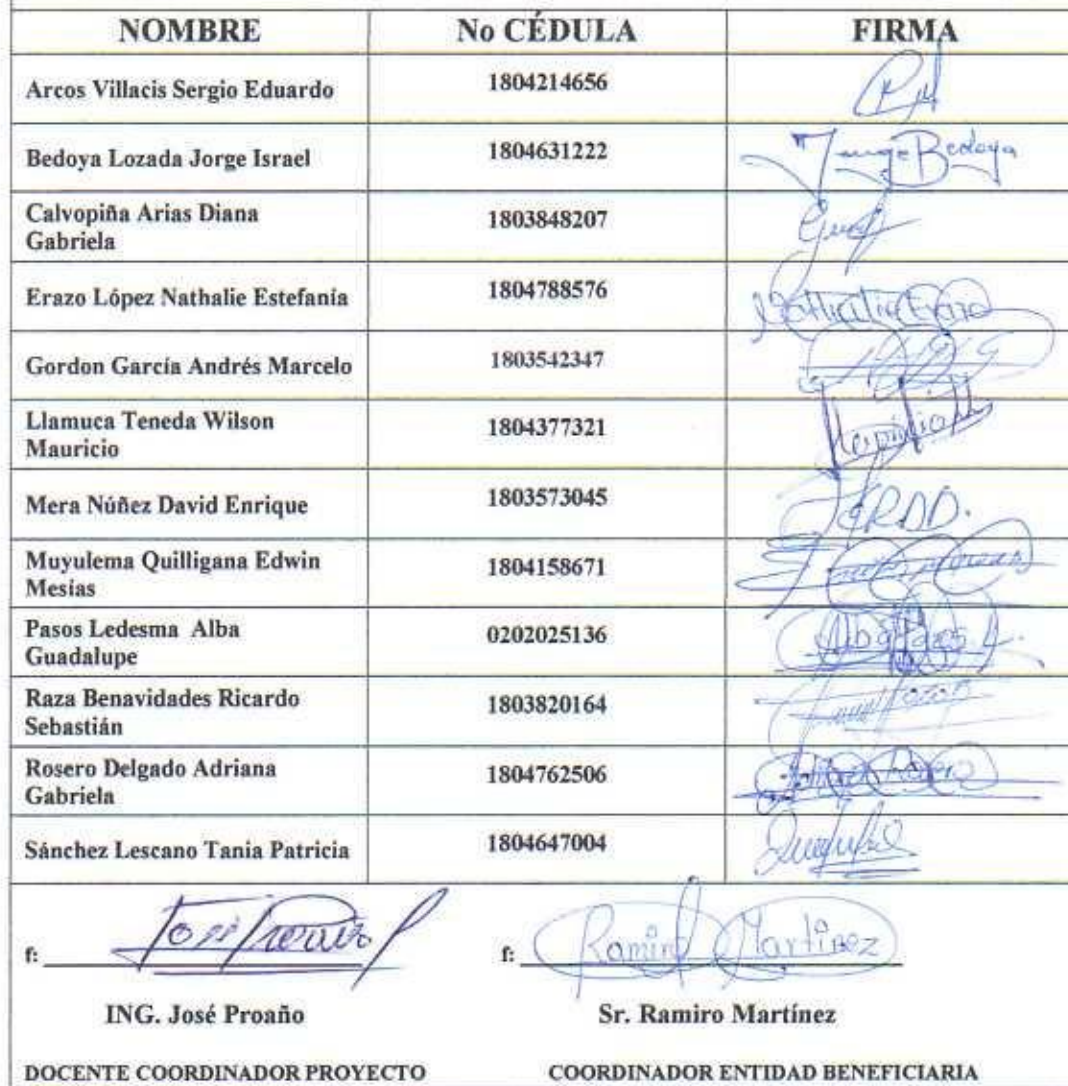 NOMBRE No CÉDULA FIRMA
Arcos Villacis Sergio Eduardo 1804214656
Bedoya Lozada Jorge Israel 1804631222 Jorge Bedoya
Calvopiña Arias Diana
Gabriela 1803848207
Erazo López Nathalie Estefanía 1804788576 Nathalie Erazo
Gordon García Andrés Marcelo 1803542347
Llamuca Teneda Wilson
Mauricio 1804377321
Mera Núñez David Enrique 1803573045
Muyulema Quilligana Edwin
Mesías 1804158671
Pasos Ledesma Alba
Guadalupe 0202025136 Alba Pasos L.
Raza Benavidades Ricardo
Sebastián 1803820164
Rosero Delgado Adriana
Gabriela 1804762506 Rosero
Sánchez Lescano Tania Patricia 1804647004
f: José Proaño f: Ramiro Martínez
ING. José Proaño Sr. Ramiro Martínez
DOCENTE COORDINADOR PROYECTO COORDINADOR ENTIDAD BENEFICIARIA